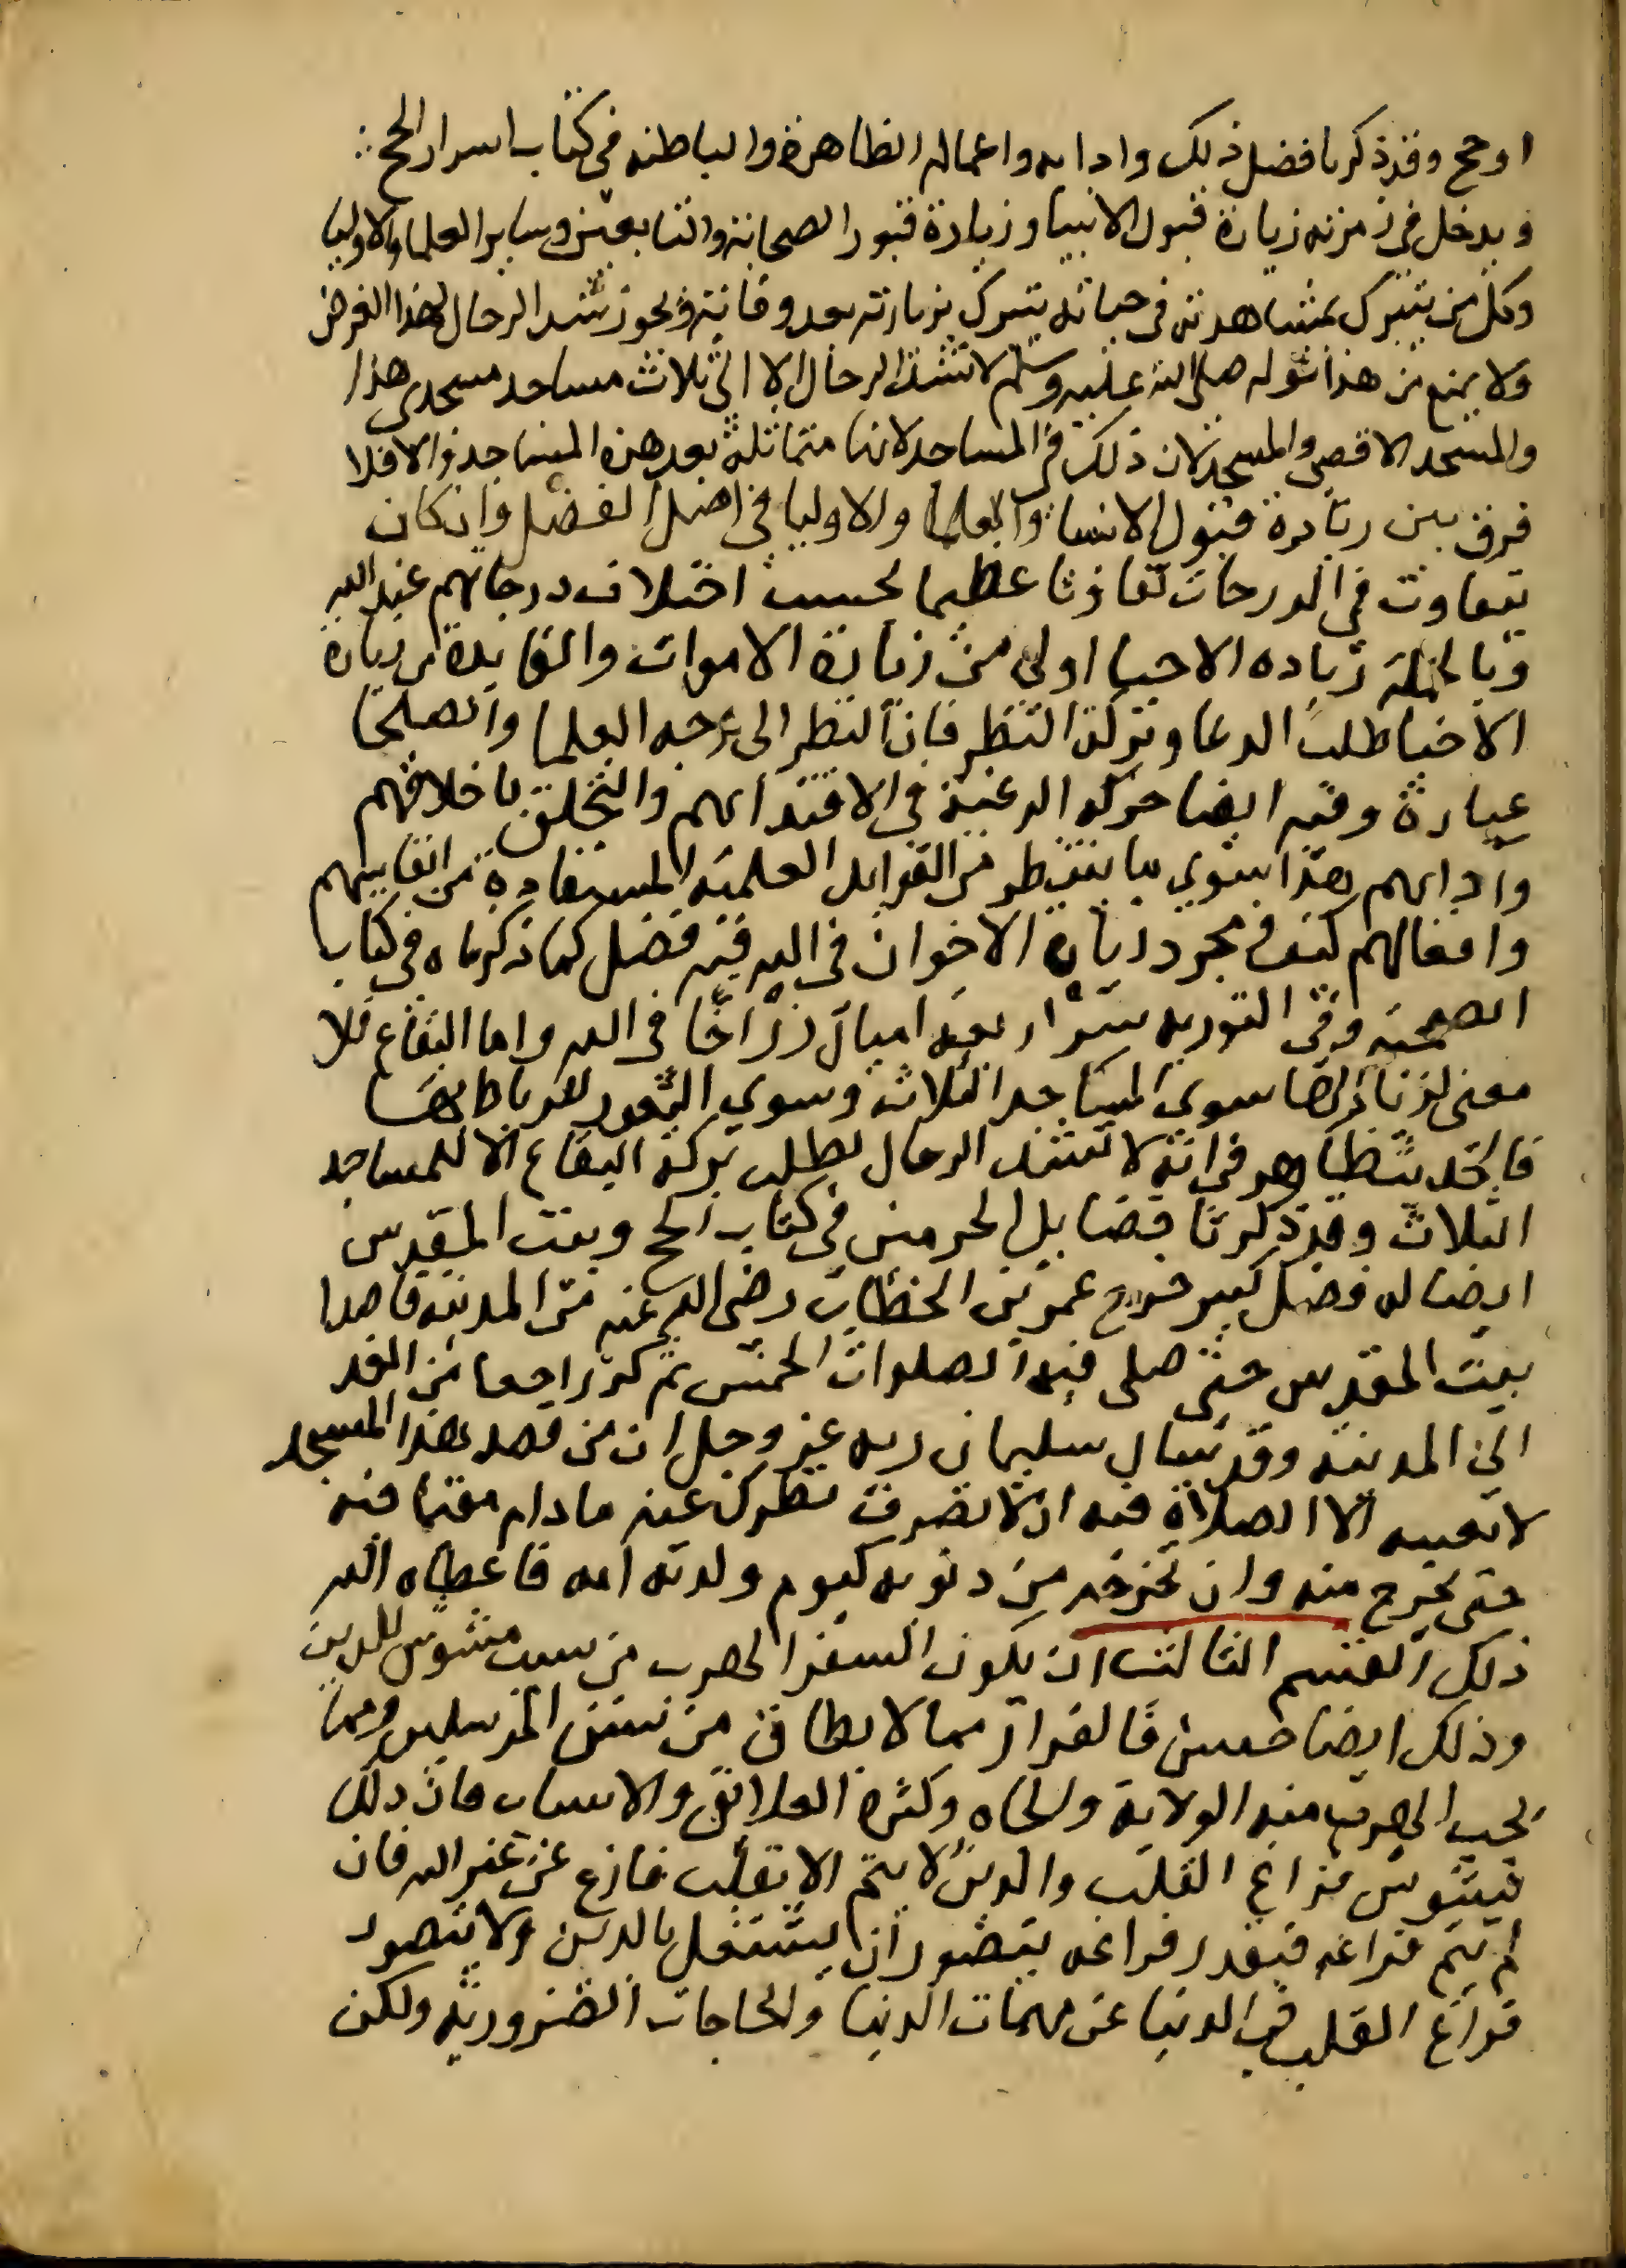 او حج وقد ذكرنا فضل ذلك وادابه واعماله الظاهرة والباطنه في كتاب اسرار الحج
ويدخل في زمرته زيارة قبول الانبيا وزيارة قبور الصحابة والتابعين وساير العلما والاوليا
وكل من يتبرك بمشاهدته في حياته يتبرك بزيارته بعد وفاتة ويجوز شد الرحال لهذا الغرض
ولا يمنع من هذا قوله صلى الله عليه وسلم لا تشد الرحال الا الى ثلاث مساجد مسجدي هذا
والمسجد الاقصى والمسجد لان ذلك في المساجد لانها متماثلة بعد هذه المساجد والا فلا
فرق بين زيارة قبول الانبيا والعلما والاوليا في اصل الفضل وان كان
يتفاوت في الدرجات تفاوتا عظيما بحسب اختلاف درجاتهم عند الله
وبالجملة زياده الاحيا اولى من زيارة الاموات والفايدة من زيارة
الاحيا طلب الدعا وبركة النظر فان النظر الى وجه العلما والصلحا
عبادة وفيه ايضا حركه الرغبة في الاقتدا بهم والتخلق باخلاقهم
وادابهم هذا سوي ما ينتظر من الفوايد العلمية المستفادة من انفاسهم
وافعالهم كيف ومجرد زيارة الاخوان في الله فيه فضل كما ذكرناه في كتاب
الصحبة وفي التوريه سر اربعة اميال زر اخا في الله واما البقاع فلا
معنى لزيارتها سوى المساجد الثلاث وسوي الثغور للرباط بها
فالحديث ظاهر في انه لا تشد الرحال لطلب بركة البقاع الا للمساجد
الثلاث وقد ذكرنا فضايل الحرمين في كتاب الحج وبيت المقدس
ايضا له فضل كبير خرج عمر بن الخطاب رضي الله عنه من المدينة قاصدا
بيت المقدس حتى صلى فيه الصلوات الخمس ثم كر راجعا من الغد
الى المدينة وقد سال سليمان ربه عز وجل ان من قصد هذا المسجد
لا يعنيه الا الصلاة فيه ان لا تصرف نظرك عنه ما دام مقيما فيه
حتى يخرج منه وان تخرجه من ذنوبه كيوم ولدته امه فاعطاه الله
ذلك القسم الثالث ان يكون السفر الهرب من سبب مشوش للدين
وذلك ايضا حسن فالفرار مما لا يطاق من سنن المرسلين ومما
يجب الهرب منه الولاية والجاه وكثرة العلايق والاسباب فان ذلك
يشوش فراغ القلب والدين لا يتم الا بقلب فارغ عن غير الله فان
لم يتم فراغه فبقدر فراغه يتصور ان يشتغل بالدين ولا يتصور
فراغ القلب في الدنيا عن مهمات الدنيا والحاجات الضرورية ولكن